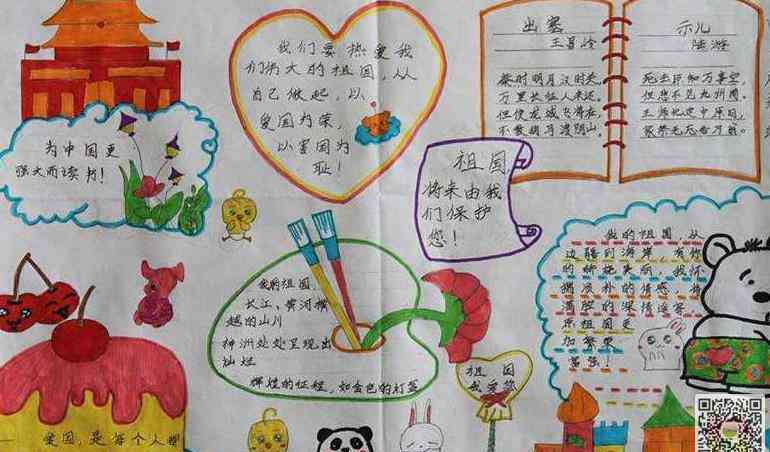 为中国更
强大而读书!
我们要热爱我
们伟大的祖国,从
自己做起,以
爱国为荣,
以害国为
耻!
出塞
王昌龄
秦时明月汉时关,
万里长征人未还。
但使龙城飞将在,
不教胡马渡阴山。
示儿
陆游
死去原知万事空,
但悲不见九州同。
王师北定中原日,
家祭无忘告乃翁。
祖国,
将来由我
们保护
您!
我的祖国
长江、黄河横
越的山川
神洲处处呈现出
灿烂
辉煌的征程,如金色的灯盏
祖国
我爱您
我的祖国,从
边疆到海岸,有你
的娇艳美丽,我怀
揣质朴的情感,将
满腔的深情送
祝祖国更
加繁荣
富强!
爱国,是每个人